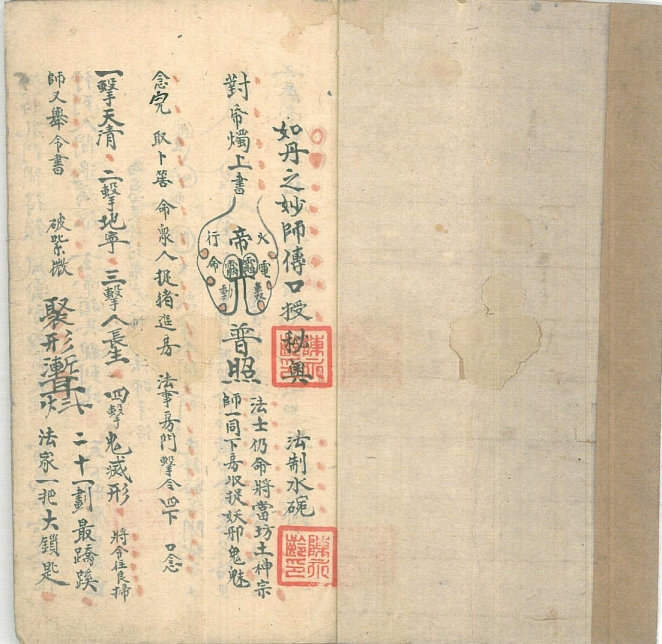 如丹之妙師傳口授秘奥 法制水碗
對帝燭上書
火電
帝
行命動
普照
法士仍命將當坊土神宗
師一同下房收捉妖邪鬼魅
念完 取卜筶 命衆人捉猪進房 法事房門擊令四下 口念
一擊天清 二擊地寧 三擊人長生 四擊鬼滅形
將令住良掃
師又舉令書 破紫微
聚形
二十一劃最蹺蹊
法家一把大鎖匙